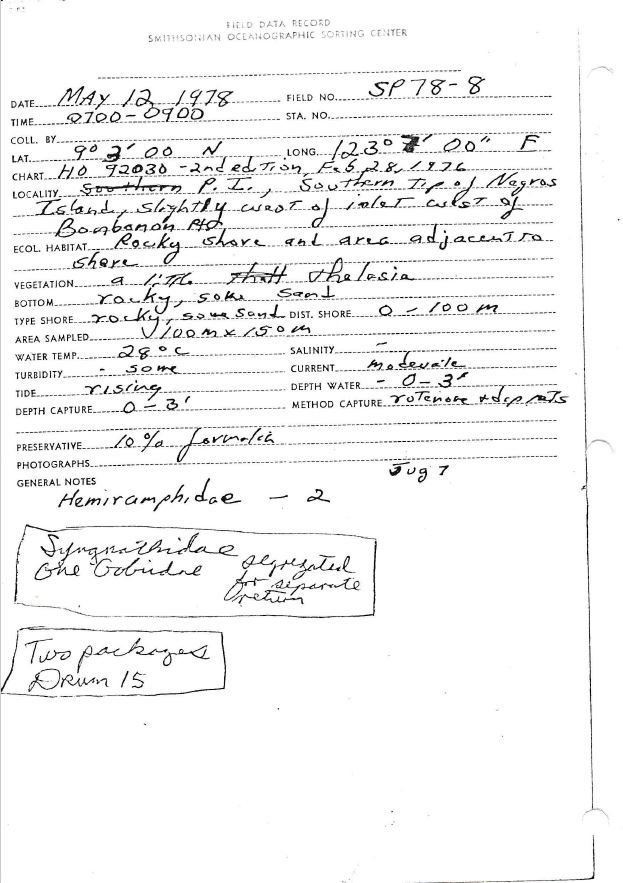 FIELD DATA RECORD
SMITHSONIAN OCEANOGRAPHIC SORTING CENTER
DATE MAY 12, 1978 FIELD NO. SP78-8
TIME 0700-0900 STA. NO.
COLL. BY
LAT. 9° 3' 00 N LONG. 123° 00" E
CHART HO 92030 - 2nd edition, Feb 28, 1976
LOCALITY Southern P.I., Southern Tip of Negros
Island, slightly west of inlet west of
Bonbonon Pt.
ECOL. HABITAT Rocky shore and area adjacent to
shore
VEGETATION a little Thalasia
BOTTOM rocky, some sand
TYPE SHORE rocky, some sand DIST. SHORE 0 - 100 m
AREA SAMPLED √100m x 150m
WATER TEMP. 28°C SALINITY -
TURBIDITY - some CURRENT moderate
TIDE rising DEPTH WATER - 0-3'
DEPTH CAPTURE 0-3' METHOD CAPTURE rotenone + dip nets
PRESERVATIVE 10% formalin
PHOTOGRAPHS
Jug 7
GENERAL NOTES
Hemiramphidae - 2
Syngnathidae
One Gobiidae segregated
for separate
return
Two packages
Drum 15